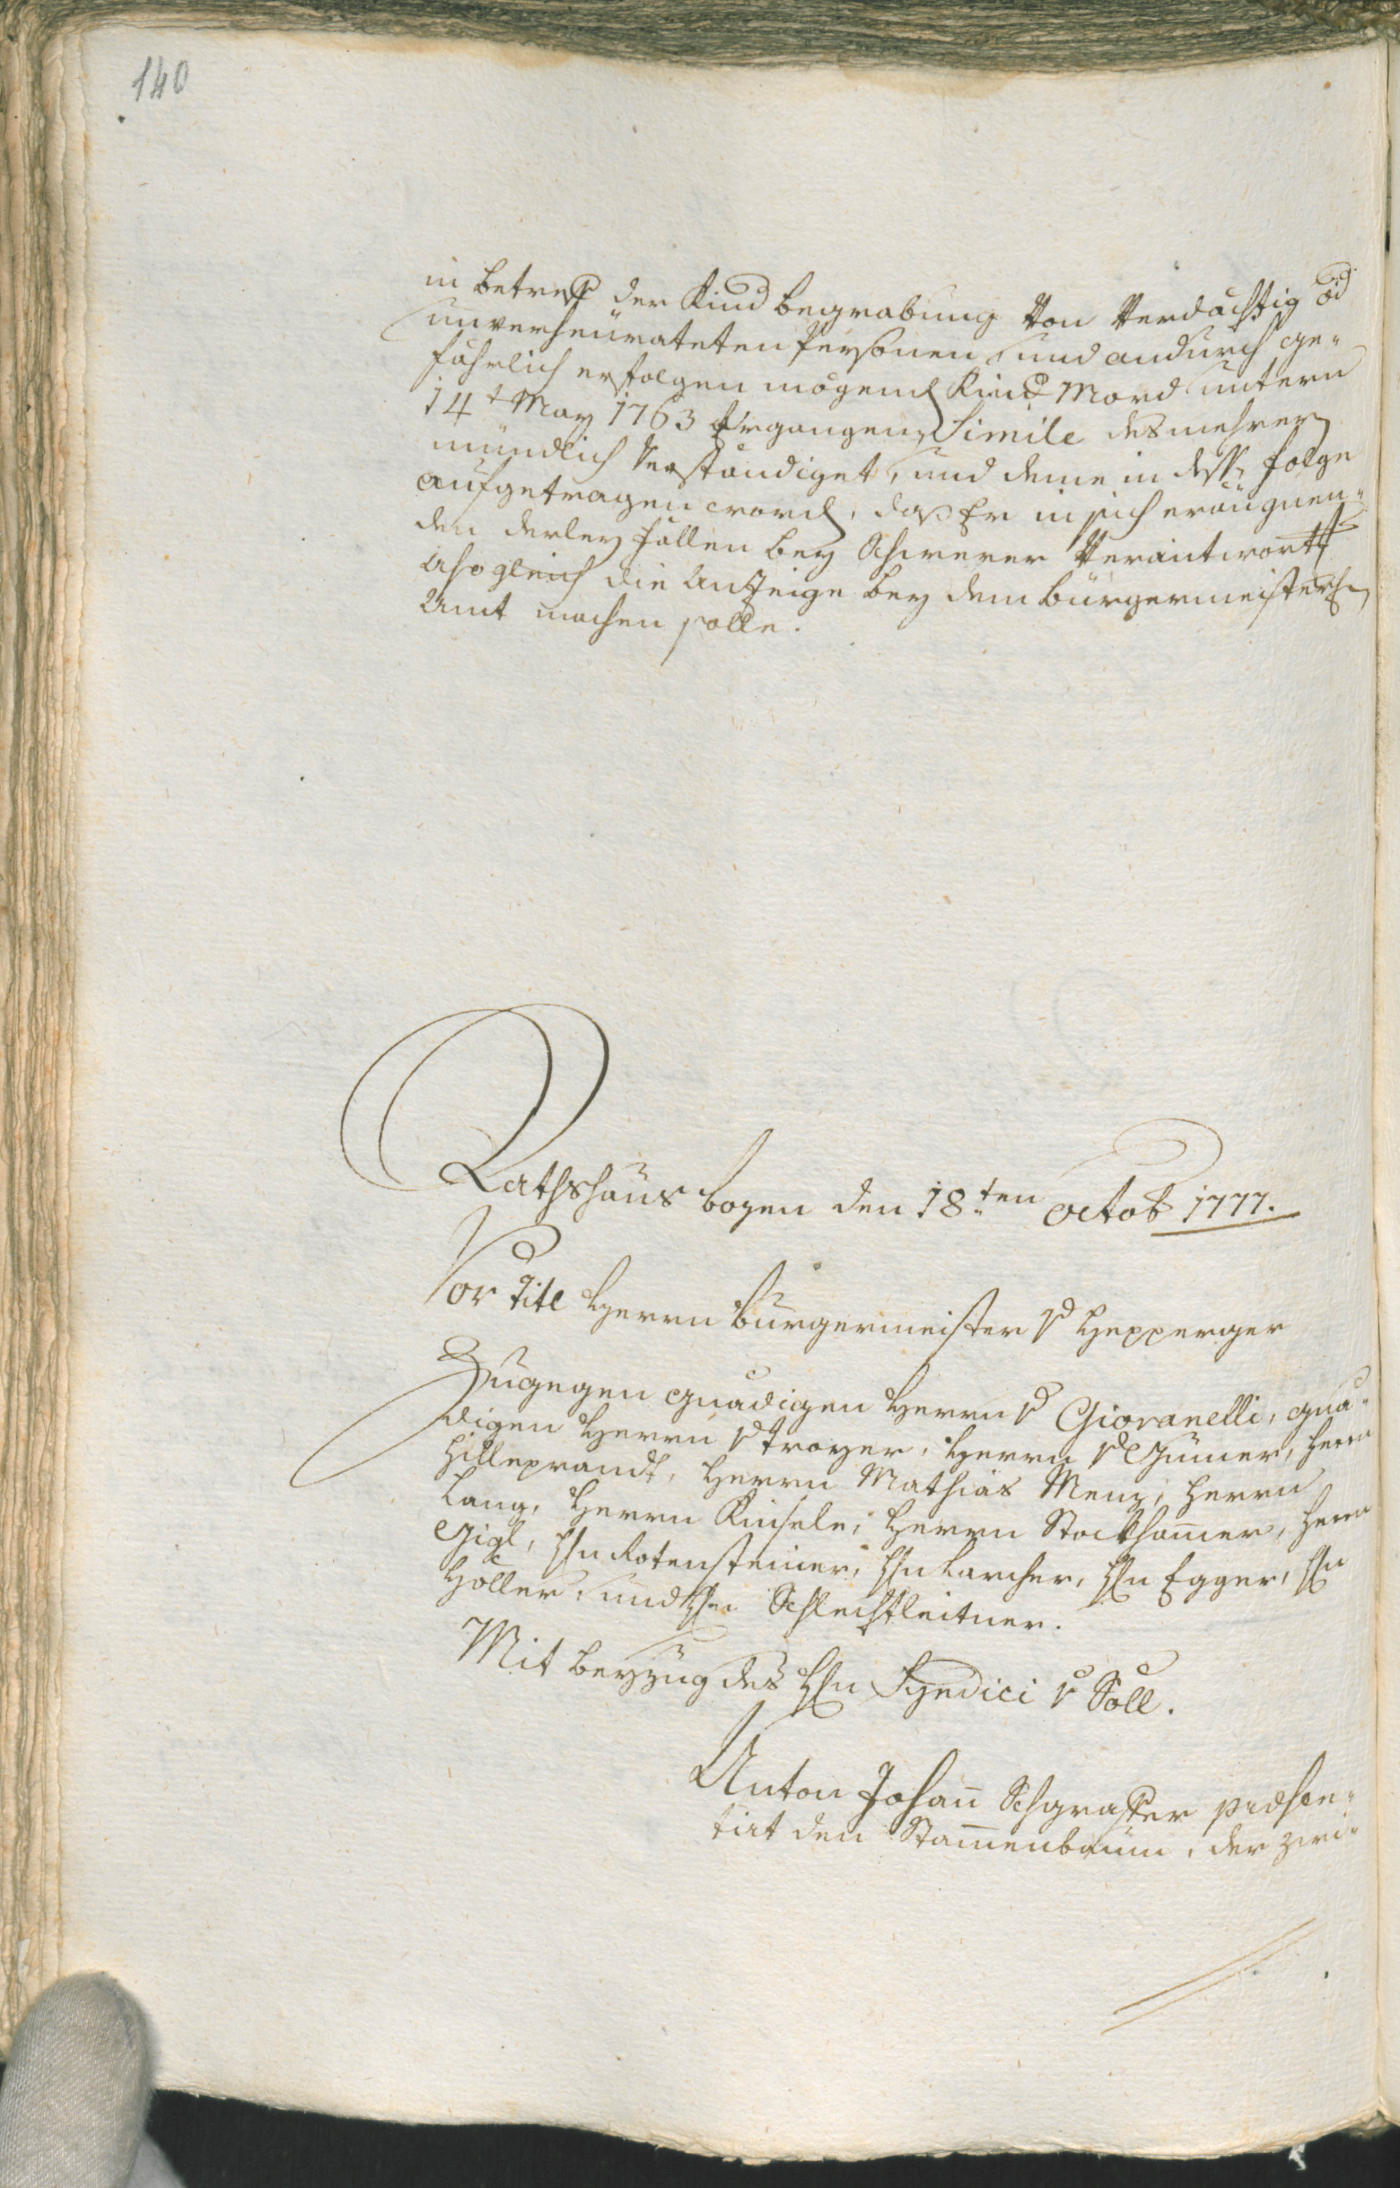 140
in betreff der Kind begrabung von verdächtig od
unverheürateten Persohnen und andurch ge-
fährlich erfolgen mögend Kind Mord untern
14t May 1763 Ergangen Simile des mehrern
mündlich verständiget, und deme in dessen folge
aufgetragen word, daß Er in sich eräugnen-
den derley fällen bey Schwerer Verantwortt
also gleich die Anzeige bey dem bürgermeister
Amt machen solle.
Rathshaus bozen den 18ten octob 1777.
Vor Titl Herrn bürgermeister v Hepperger
Zugegen gnädigen Herrn v Giovanelli, gnä-
digen Herrn v Troyer, Herrn v Gümer, Herrn
Hilleprandt, Herrn Mathias Menz, Herrn
Lang, Herrn Kinsele, Herrn Stockhamer, Herrn
Gigl, Hn Rotensteiner, Hn Larcher, Hn Egger, Hn
Holler, und Hn Schlechtleitner.
Mit beyzug des Hn Syndici v Söll.
Anton Johañ Schgraffer præsen-
tirt den Stam̄enbaum, der zwi-